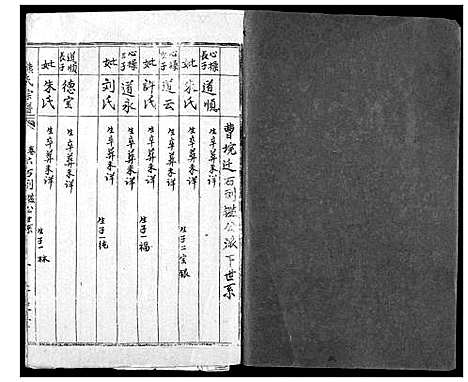 曹境迁石刘鑑公派下世系
心樑長子 道順 生卒葬未详
妣 朱氏 生卒葬未详 生子二 富 银
心樑次子 道云 生卒葬未详
妣 許氏 生卒葬未详 生子一 福
心樑 道永 生卒葬未详
妣 刘氏 生卒葬未详 生子一 纯
道順長子 德宝 生卒葬未详
妣 朱氏 生卒葬未详 生子一 林
氏宗谱 卷六 石刘鑑公世系